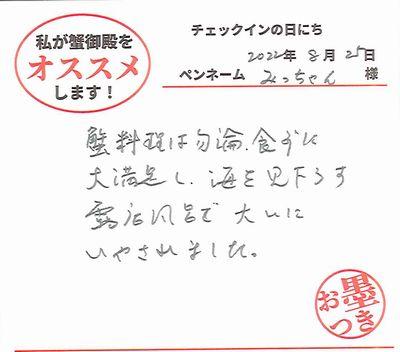 私が蟹御殿を
オススメ
します！
チェックインの日にち
2022年 8月 25日
ペンネーム みっちゃん 様
蟹料理は勿論、食事に
大満足し、海を見下ろす
露天風呂で大いに
いやされました。
お墨つき